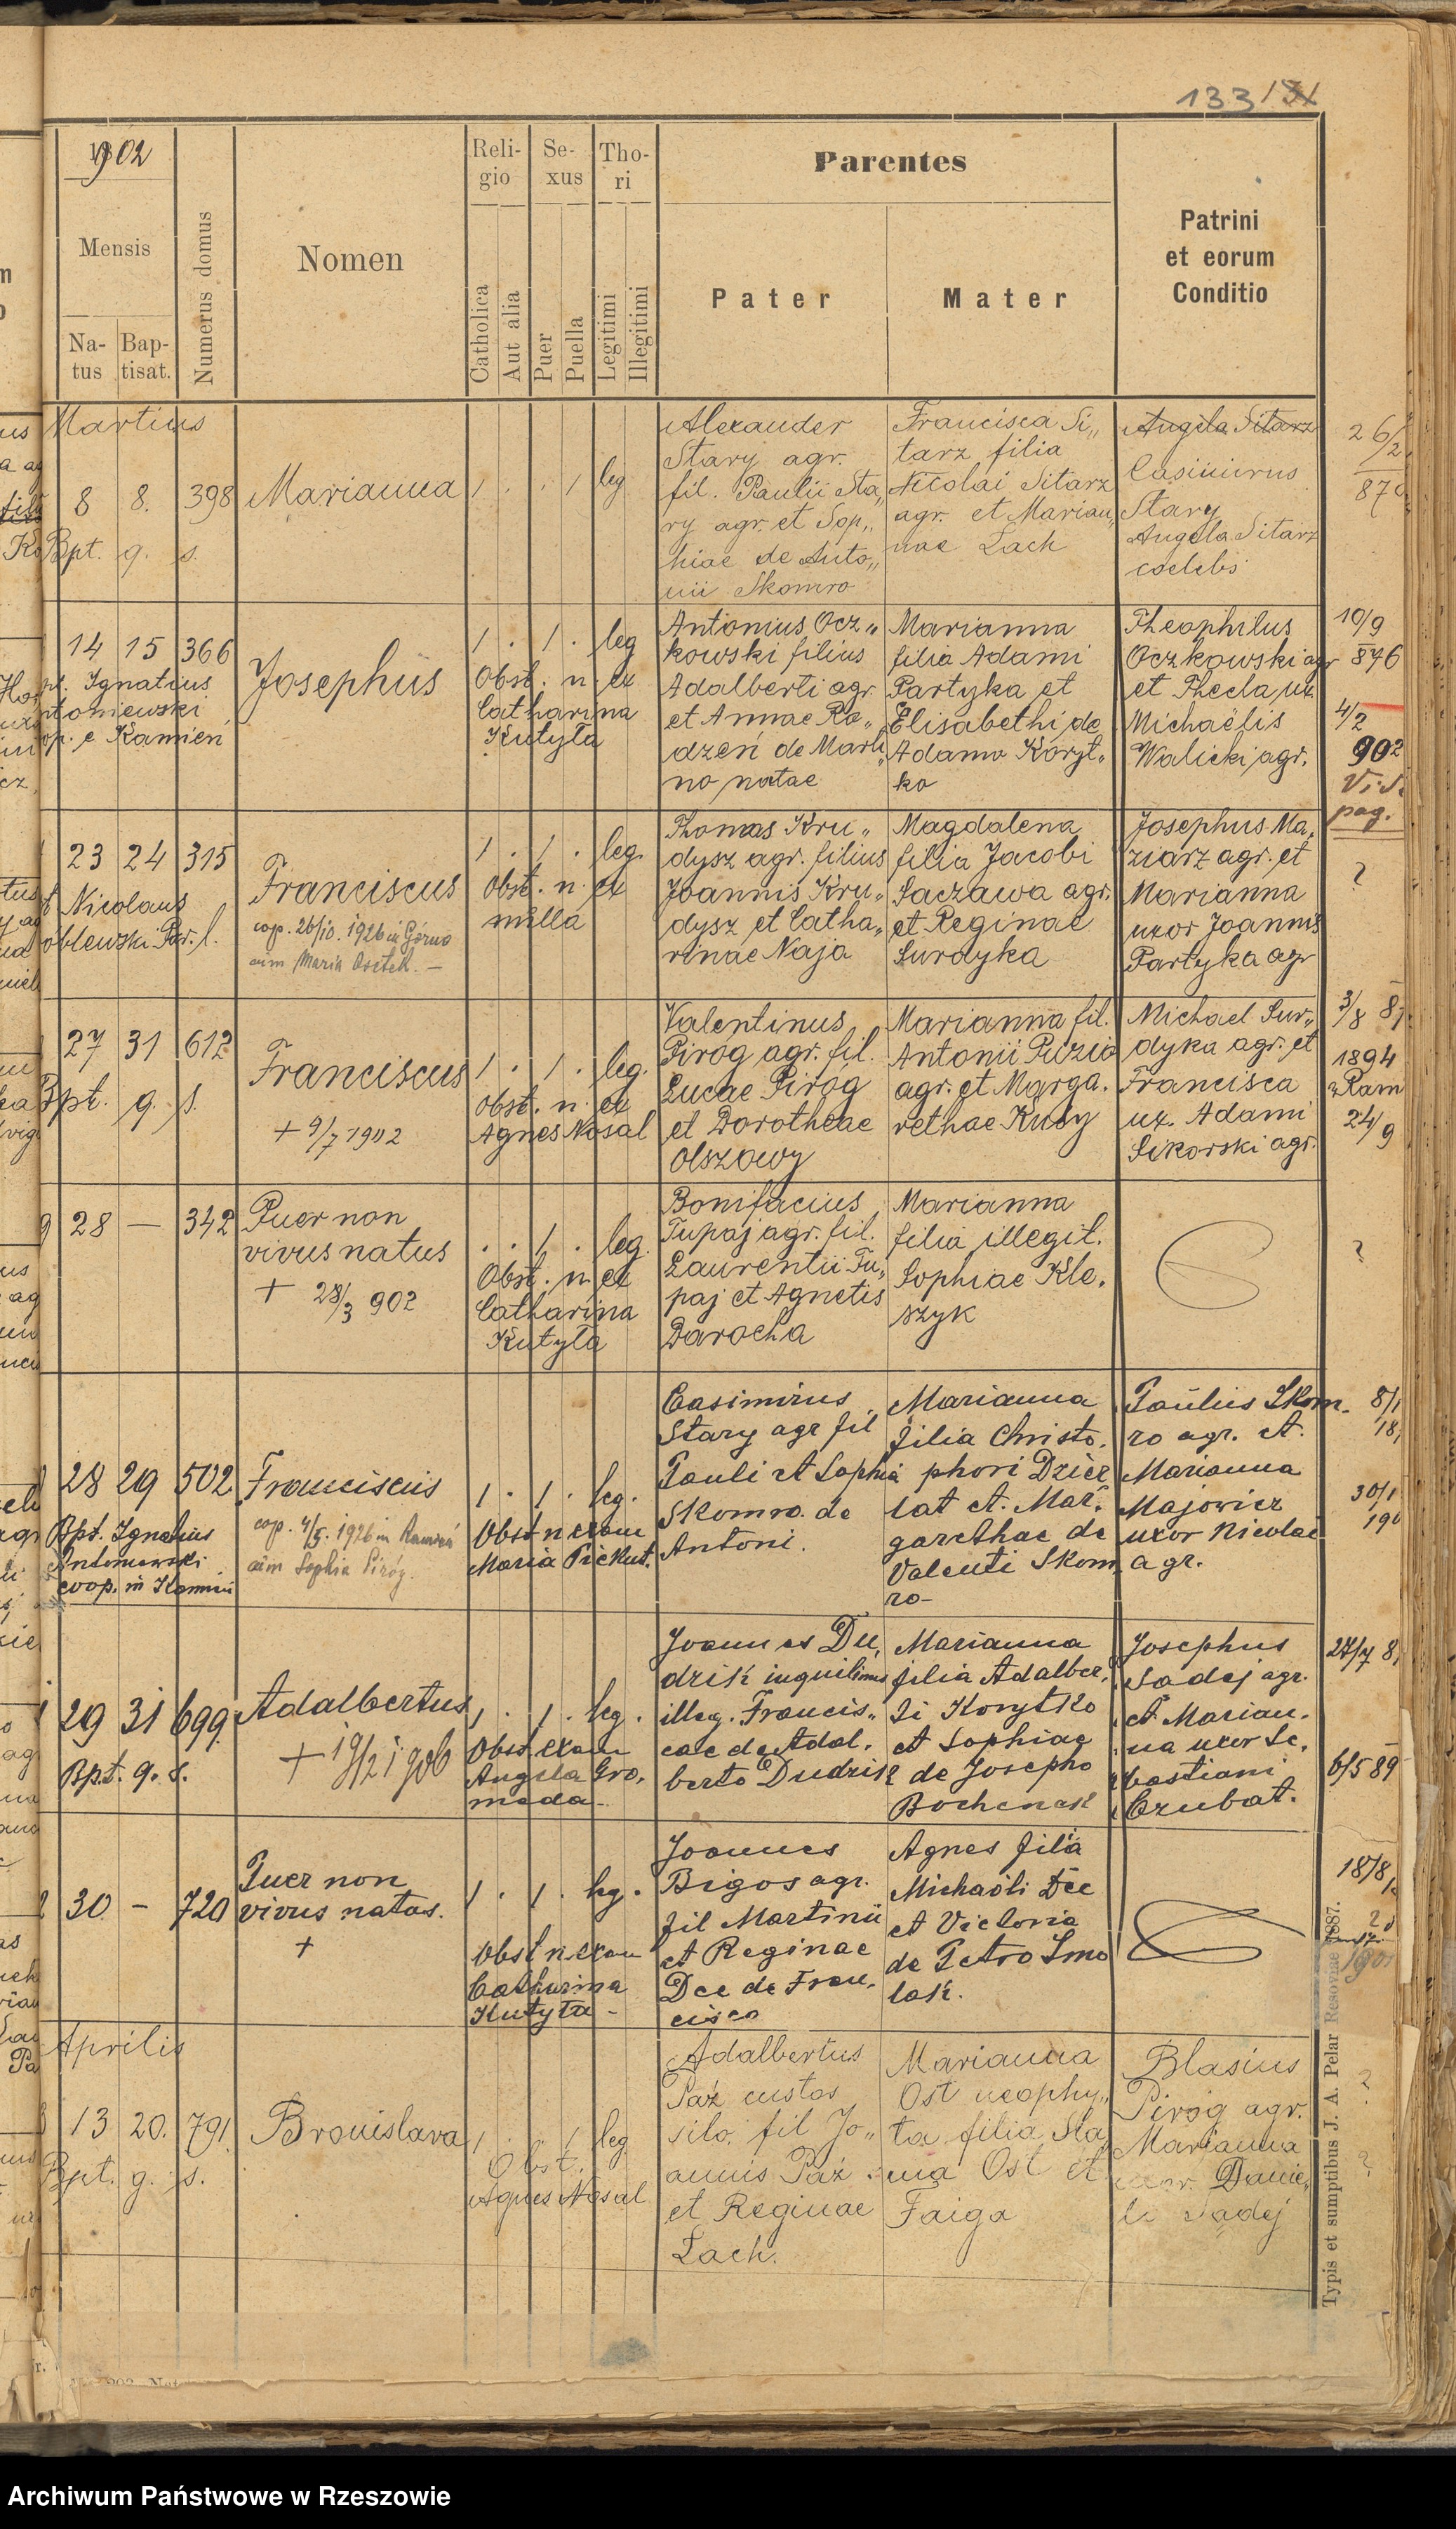 133
1902
Mensis
Na-
tus
Bap-
tisat.
Numerus domus
Nomen
Reli-
gio
Catholica
Aut alia
Se-
xus
Puer
Puella
Tho-
ri
Legitimi
Illegitimi
Parentes
Pater
Mater
Patrini
et eorum
Conditio
Martius
8 8. 398
Bpt. q. s.
Marianna
1 . . 1 leg
Alexander
Stary agr.
fil. Paulii Sta„
ry agr. et Sop„
hiae de Anto„
nii Skomro
Francisca Si„
tarz filia
Nicolai Sitarz
agr. et Marian„
nae Lach
Angela Sitarz
Casimirus
Stary
Angela Sitarz
coelebs
26/2
14 15 366
Ignatius
toniewski
e Kamień
Josephus
1 . 1 . leg
Obst. n. ex
Catharina
Kutyła
Antonius Ocz„
kowski filius
Adalberti agr.
et Annae Ro„
dzeń de Marti„
no natae
Marianna
filia Adami
Partyka et
Elisabethi de
Adamo Koryt„
ko
Theophilus
Oczkowski agr
et Thecla ux.
Michaëlis
Walicki agr.
10/9
876
4/2
902
Vid.
pag.
23 24 315
Nicolaus
Franciscus
cop. 26/10. 1926 in Górno
cum Maria Osetek. —
1 . 1 . leg.
Obst. n. ex
nulla
Thomas Kru„
dysz agr. filius
Joannis Kru„
dysz et Catha„
rinae Naja
Magdalena
filia Jacobi
Saczawa agr.
et Reginae
Surdyka
Josephus Ma„
ziarz agr. et
Marianna
uxor Joannis
Partyka agr
?
27 31 612
Bpt. q. s.
Franciscus
+ 9/7 1902
1 . 1 . leg.
Obst. n. ex
Agnes Nosal
Valentinus
Piróg agr. fil.
Lucae Piróg
et Dorotheae
Olszowy
Marianna fil.
Antonii Puzio
agr. et Marga.
rethae Kusy
Michael Sur„
dyka agr. et
Francisca
ux. Adami
Sikorski agr.
3/8
1894
24/9
28 — 342
Puer non
vivus natus
+ 28/3 902
. . 1 . leg.
Obst. n. ex
Catharina
Kutyła
Bonifacius
Tupaj agr. fil.
Laurentii Tu„
paj et Agnetis
Darocha
Marianna
filia illegit.
Sophiae Kle.
szyk
?
28 29 502
Bpt. Ignatius
Antoniewski
coop. in Kamień
Franciscus
cop. 4/5. 1926 in Kamień
cum Sophia Piróg.
1 . 1 . leg.
Obst n exam
Maria Piekut.
Casimirus
Stary agr fil
Pauli et Sophia
Skomro de
Antoni.
Marianna
filia Christo.
phori Dzieł
lat et Mar„
garethae de
Valenti Skom
ro-
Paulus Skom.
ro agr. et
Marianna
Majowicz
uxor Nicolai
agr.
29 31 699
Bpt. q. s.
Adalbertus
+ 19/2 1906
1 . 1 . leg.
Obst. exam
Angela Gro.
mada-
Joannes Du„
dzik inquilinus
illeg. Francis„
cae de Adal.
berto Dudzik
Marianna
filia Adalber.
ti Korytko
et Sophiae
de Josepho
Bochenek
Josephus
Sadej agr.
et Marian.
na uxor Se.
bastiani
Czubat.
27/7
6/5 89
30 – 720
Puer non
vivus natus.
+
1 . 1 . leg.
Obst n exam
Catharina
Kutyła -
Joannes
Bigos agr.
fil Martinii
et Reginae
Dec de Fran.
cisco
Agnes filia
Michaëli Dec
et Victoria
de Petro Smo
lak.
18/8
Aprilis
13 20. 791
Bpt. q. s.
Bronislava
1 . . 1 leg
Obst.
Agnes Nosal
Adalbertus
Paź custos
silv. fil Jo„
annis Paź
et Reginae
Lach.
Marianna
Ost neophy„
ta filia Sla
ma Ost et
Faiga
Blasius
Piróg agr.
Marianna
Danie„
li Sadej
?
?
Typis et sumptibus J. A. Pelar Resoviae 1887.
Archiwum Państwowe w Rzeszowie